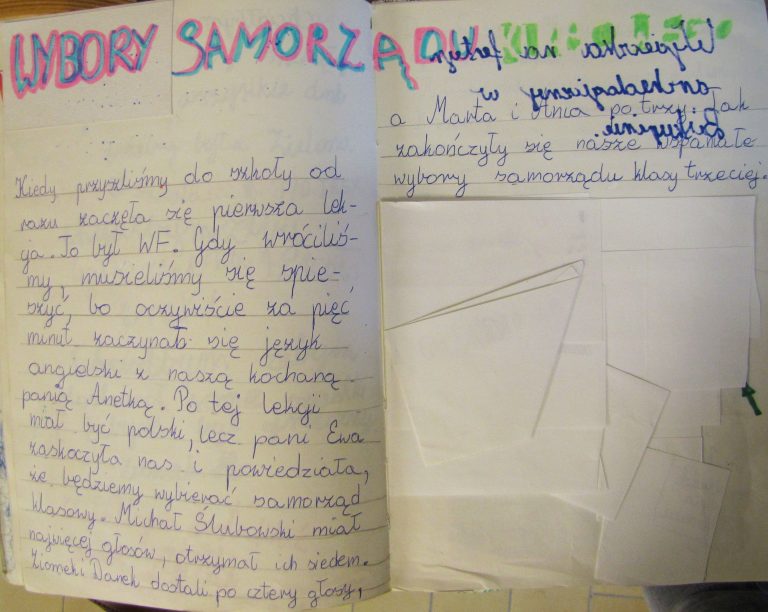 WYBORY SAMORZĄDU
Kiedy przyszliśmy do szkoły od
razu zaczęła się pierwsza lek-
ja. To był WF. Gdy wróciliś-
my, musieliśmy się spie-
szyć, bo oczywiście za pięć
minut zaczynał się język
angielski z naszą kochaną
panią Anetką. Po tej lekcji
miał być polski, lecz pani Ewa
zaskoczyła nas i powiedziała,
że będziemy wybierać samorząd
klasowy. Michał Ślubowski miał
najwięcej głosów, otrzymał ich siedem.
Ziomek i Darek dostali po cztery głosy,
Wycieczka na festyn
archeologiczny w
Biskupinie.
a Marta i Ania po trzy. Tak
zakończyły się nasze wspaniałe
wybory samorządu klasy trzeciej.